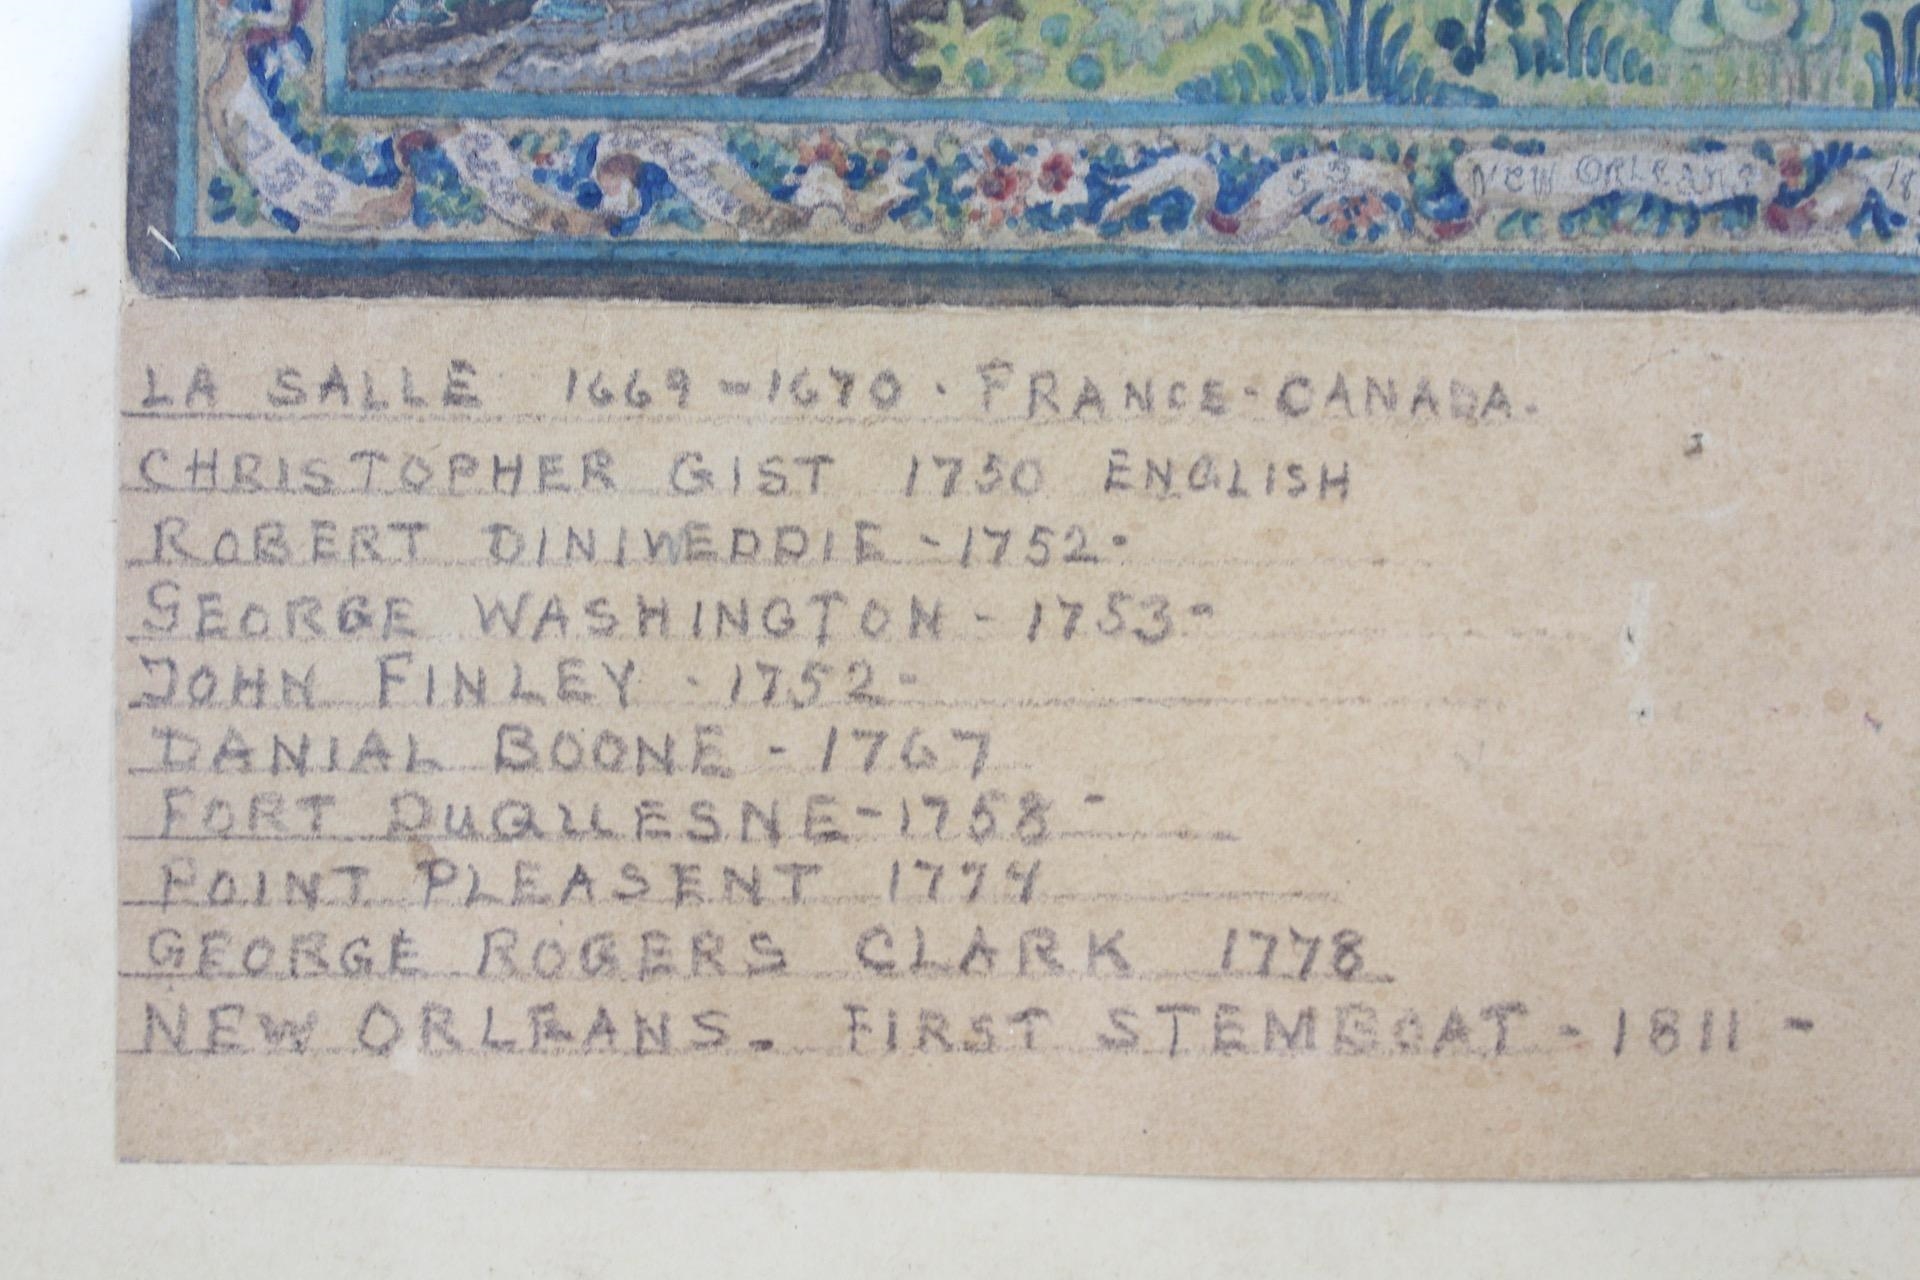 NEW ORLEANS 18
LA SALLE 1669-1670. FRANCE-CANADA.
CHRISTOPHER GIST 1750 ENGLISH
ROBERT DINIWEDDIE -1752-
GEORGE WASHINGTON - 1753-
JOHN FINLEY -1752-
DANIAL BOONE - 1767
FORT DUQUESNE-1758 -
POINT PLEASENT 1774
GEORGE ROGERS CLARK 1778
NEW ORLEANS. FIRST STEMBOAT - 1811 -